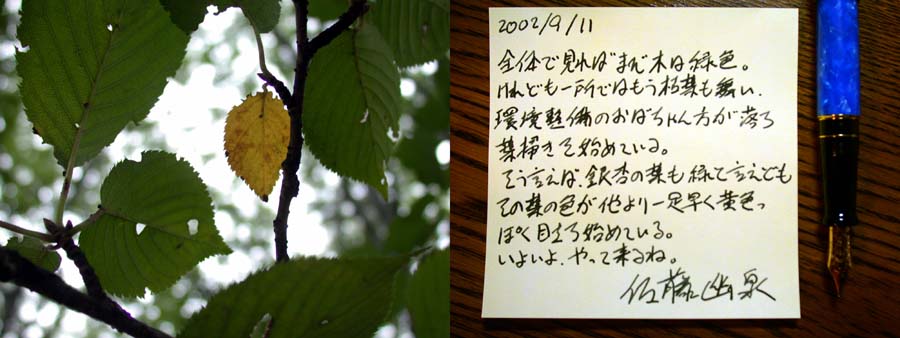 2002/9/11
全体で見ればまだ木は緑色。
けれども一所ではもう枯葉も舞い、
環境整備のおばちゃん方が落ち
葉掃きを始めている。
そう言えば、銀杏の葉も緑と言えども
その葉の色が他より一足早く黄色っ
ぽく目立ち始めている。
いよいよ、やって来るね。
佐藤幽泉